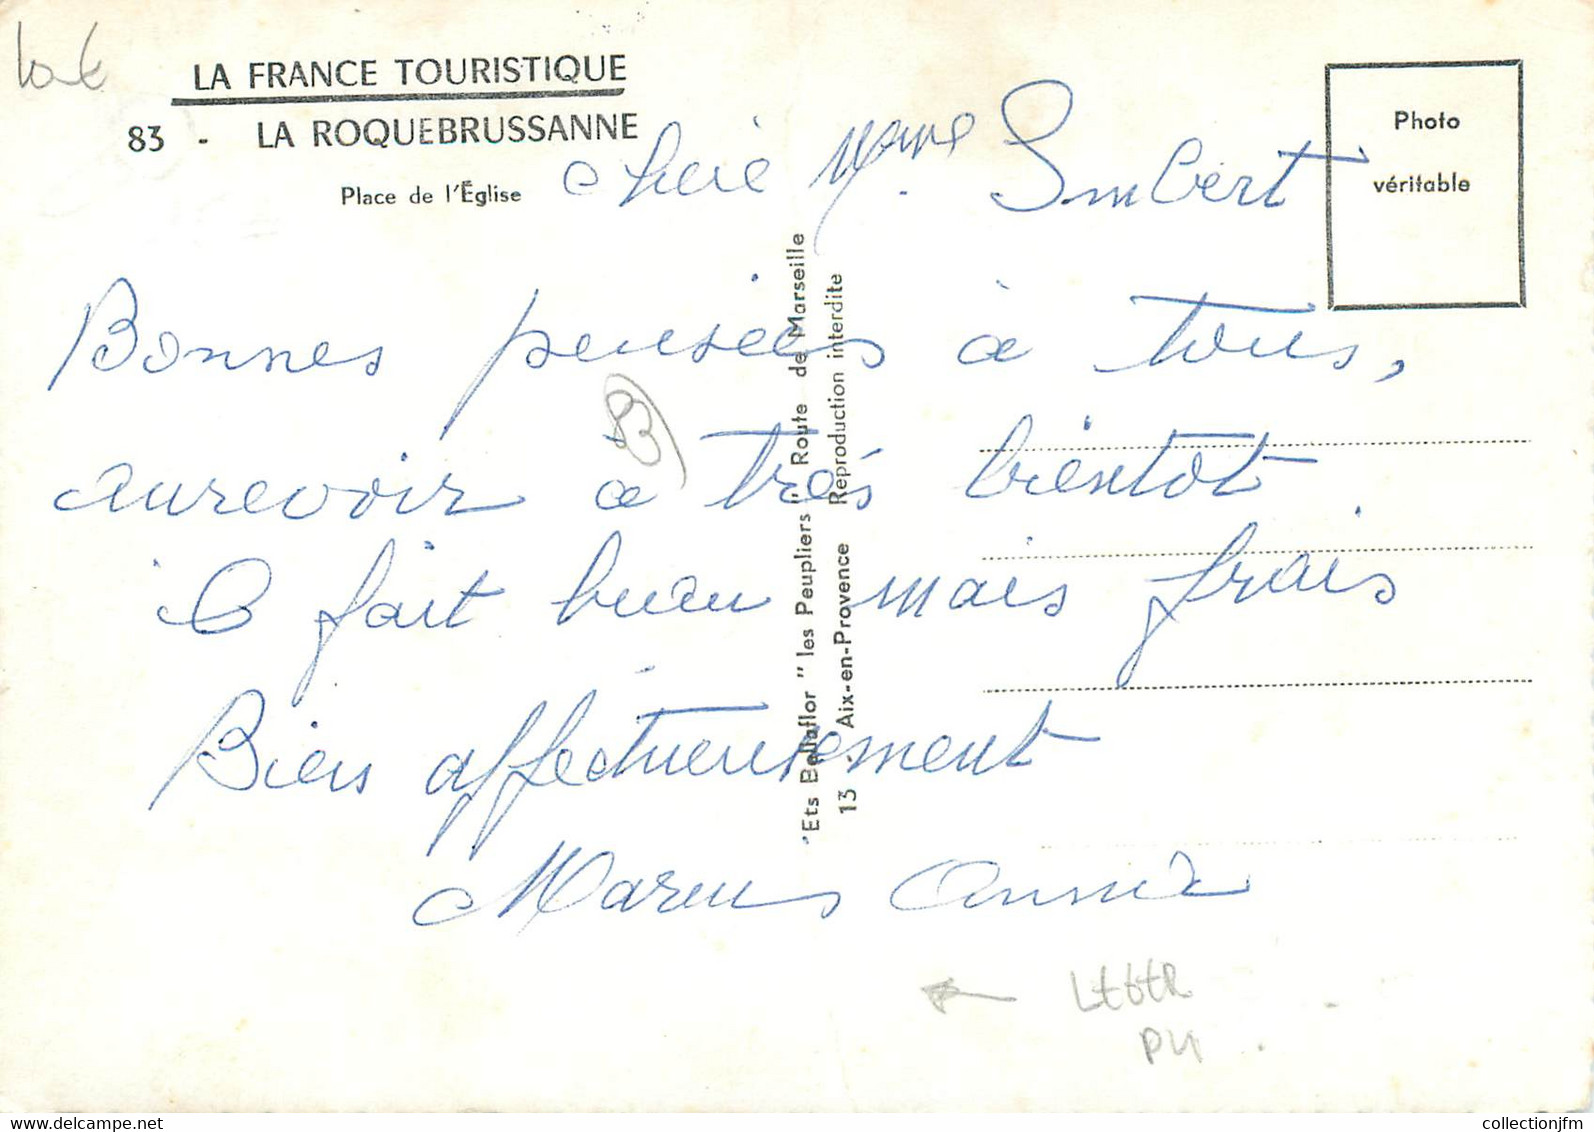 LA FRANCE TOURISTIQUE
83 - LA ROQUEBRUSSANNE
Place de l'Église
Photo
véritable
Chère Mme Imbert
Bonnes pensées à tous,
aurevoir à très bientot
il fait beau mais frais
Bien affectueusement
Marius Annie
'Ets Bellaflor "les Peupliers" Route de Marseille
13 - Aix-en-Provence Reproduction interdite
83
PU
collectionjfm